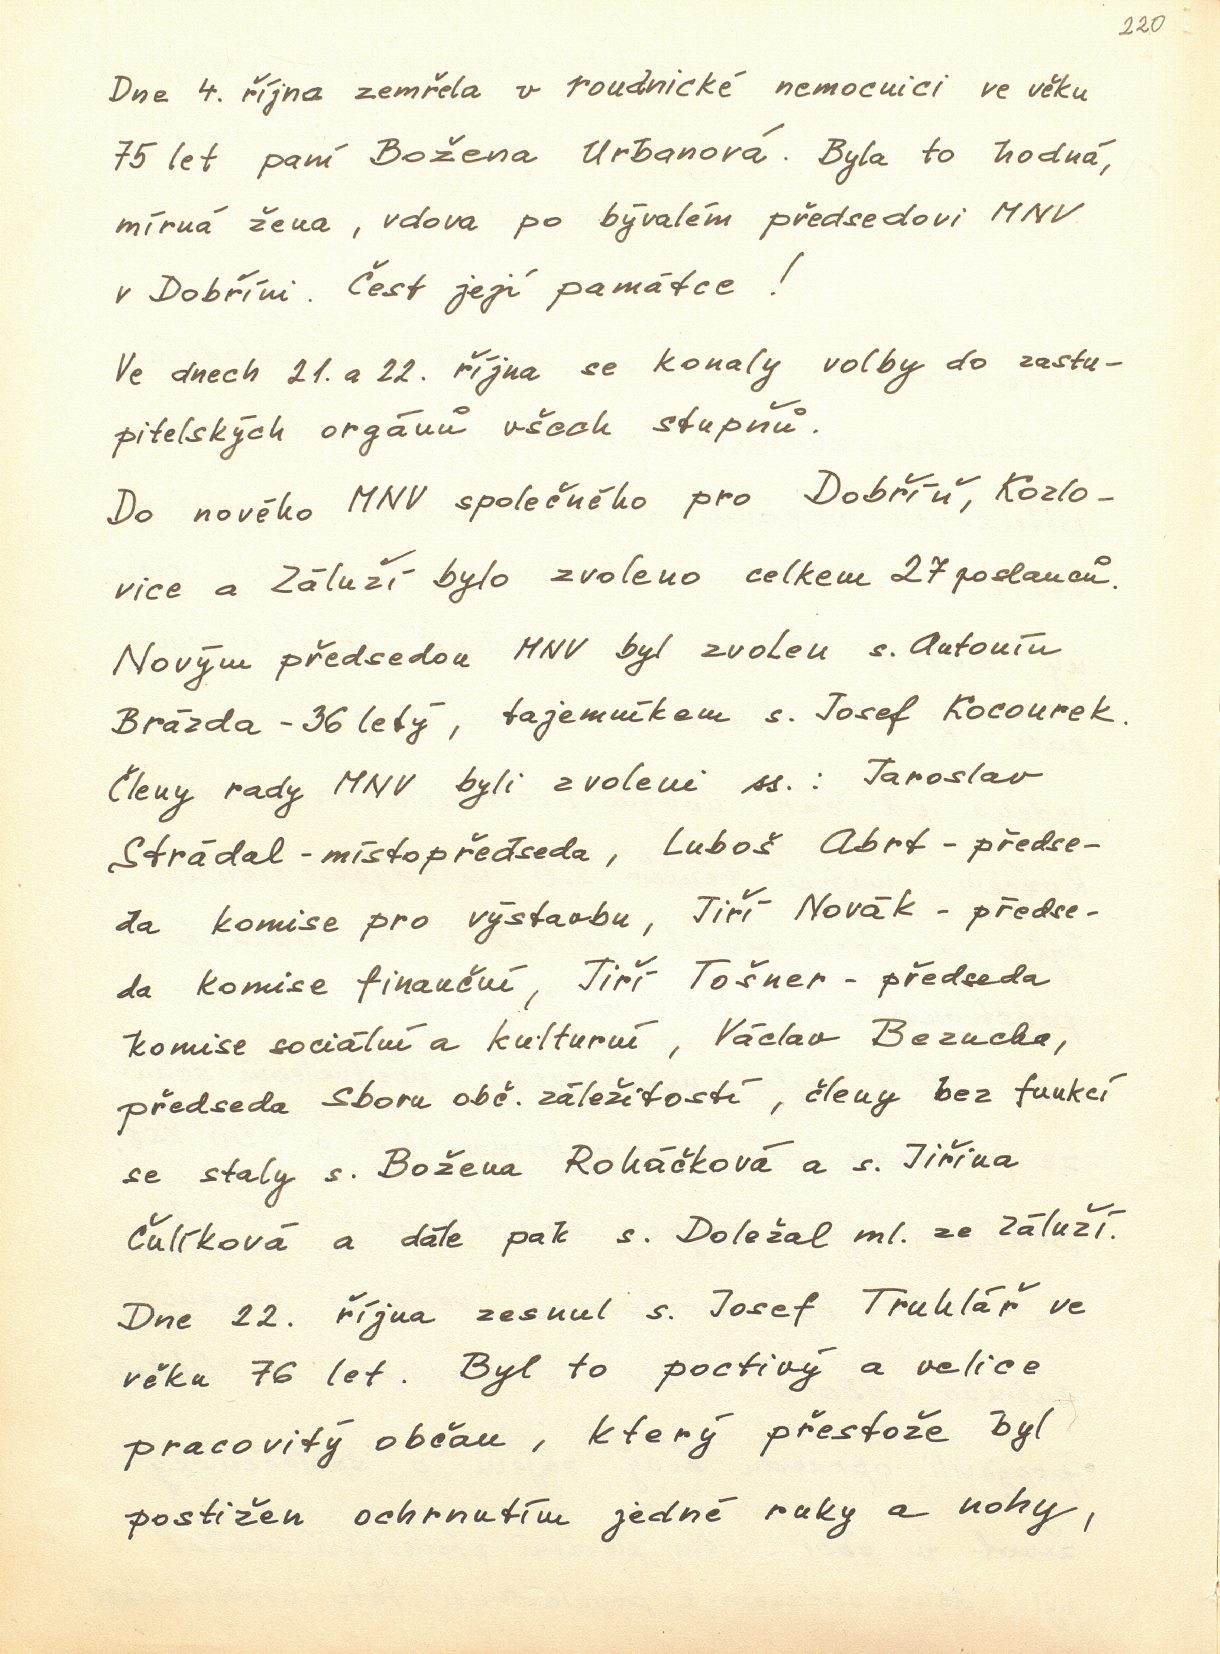 220
Dne 4. října zemřela v roudnické nemocnici ve věku
75 let paní Božena Urbanová. Byla to hodná,
mírná žena, vdova po bývalém předsedovi MNV
v Dobříni. Čest její památce!
Ve dnech 21. a 22. října se konaly volby do zastu-
pitelských orgánů všech stupňů.
Do nového MNV společného pro Dobříň, Kozlo-
vice a Záluží bylo zvoleno celkem 27 poslanců.
Novým předsedou MNV byl zvolen s. Antonín
Brázda - 36 letý, tajemníkem s. Josef Kocourek.
Členy rady MNV byli zvoleni ss.: Jaroslav
Strádal - místopředseda, Luboš Abrt - předse-
da komise pro výstavbu, Jiří Novák - předse-
da komise finanční, Jiří Tošner - předseda
komise sociální a kulturní, Václav Bezucha,
předseda Sboru obč. záležitostí, členy bez funkcí
se staly s. Božena Roháčková a s. Jiřina
Čulíková a dále pak s. Doležal ml. ze Záluží.
Dne 22. října zesnul s. Josef Truhlář ve
věku 76 let. Byl to poctivý a velice
pracovitý občan, který přestože byl
postižen ochrnutím jedné ruky a nohy,